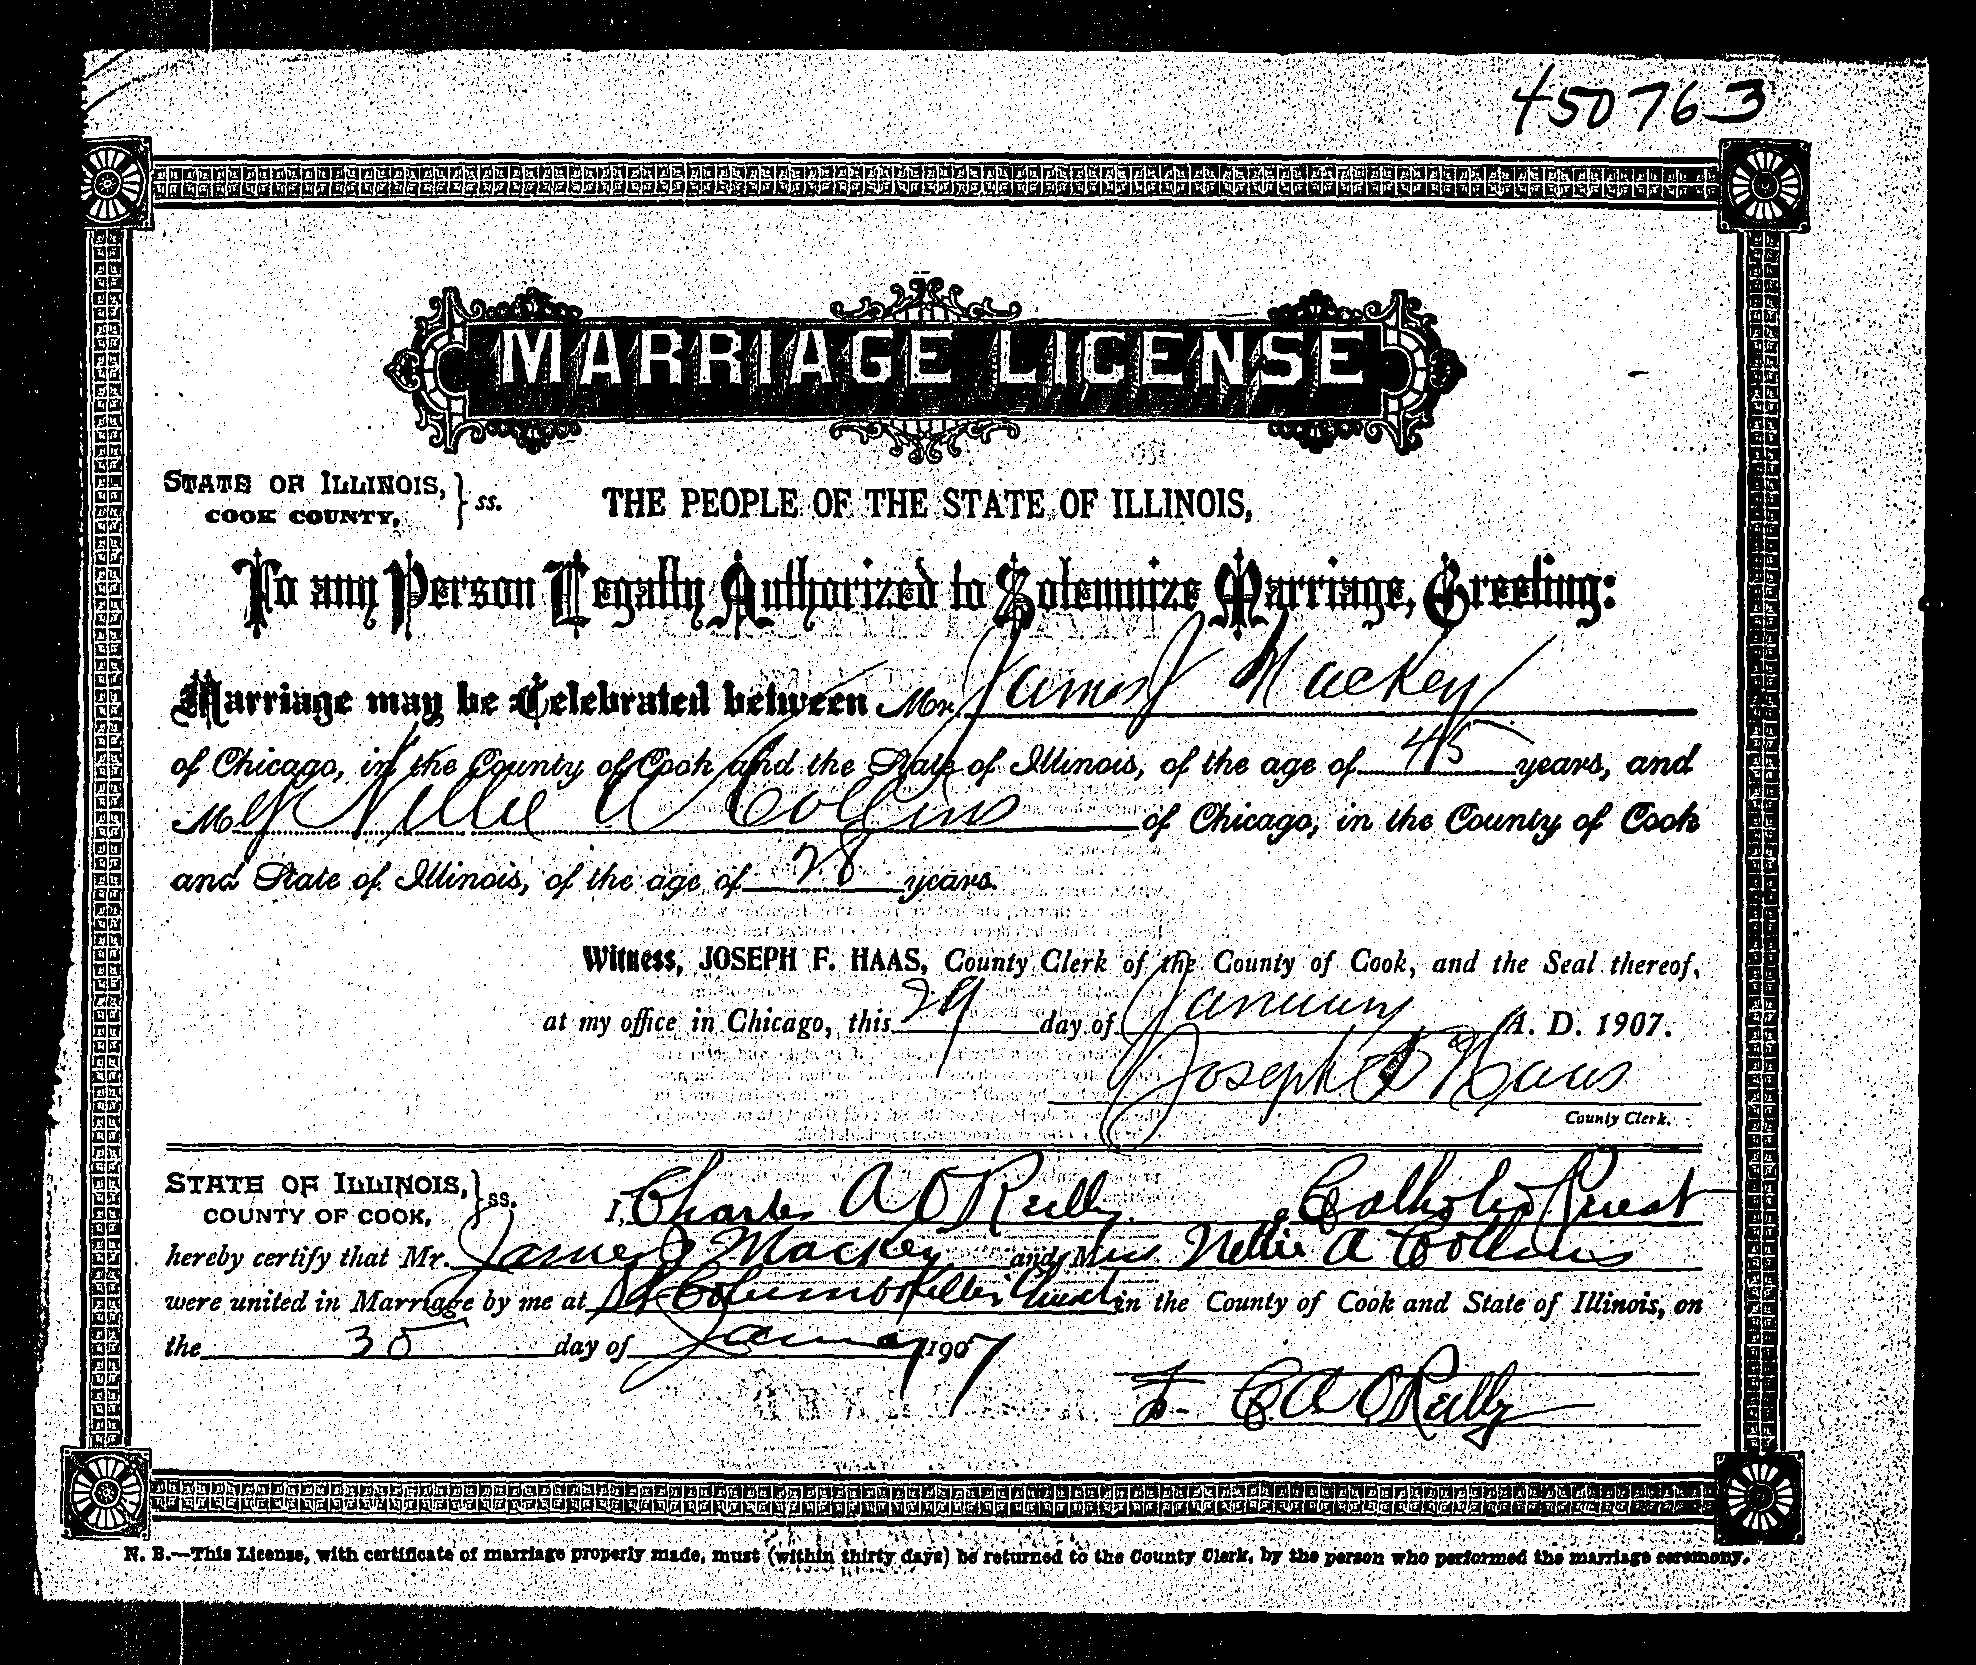 450763
MARRIAGE LICENSE
STATE OF ILLINOIS, } ss. THE PEOPLE OF THE STATE OF ILLINOIS,
COOK COUNTY,
To any Person Legally Authorized to Solemnize Marriage, Greeting:
Marriage may be Celebrated between Mr. James J Mackey
of Chicago, in the County of Cook and the State of Illinois, of the age of 45 years, and
M Nellie A Collins of Chicago, in the County of Cook
and State of Illinois, of the age of 28 years.
Witness, JOSEPH F. HAAS, County Clerk of the County of Cook, and the Seal thereof,
at my office in Chicago, this 29 day of January A. D. 1907.
Joseph F Haas
County Clerk.
STATE OF ILLINOIS, } ss. I, Charles A O'Reilly a Catholic Priest
COUNTY OF COOK,
hereby certify that Mr. James J Mackey and Miss Nellie A Collins
were united in Marriage by me at St Columbkille's Church in the County of Cook and State of Illinois, on
the 30 day of January 1907
C A O'Reilly
N. B.—This License, with certificate of marriage properly made, must (within thirty days) be returned to the County Clerk, by the person who performed the marriage ceremony.